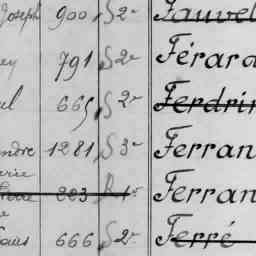 Joseph 900 S 2e Fauvel
ey 791 S 2e Férard
ul 665 S 2e Ferdrin
ndre 1281 S 3e Ferran
erie
223 R 1e Ferran
e
ouis 666 S 2e Ferré